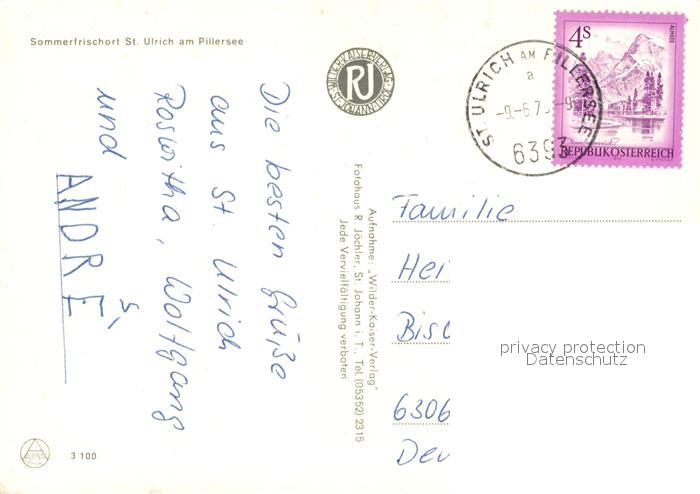 Sommerfrischort St. Ulrich am Pillersee
Die besten Grüße
aus St. Ulrich
Roswitha, Wolfgang
und
ANDRÉ
S.
Aufnahme: „Wilder-Kaiser-Verlag“
Fotohaus R. Jöchler, St. Johann i. T., Tel. (05352) 2315
Jede Vervielfältigung verboten
WILDER-KAISER-VERLAG
RJ
ST. JOHANN-TIROL
ST. ULRICH AM PILLERSEE
a
-9.-6.7
6393
4S
ALMSEE
REPUBLIK ÖSTERREICH
Familie
Hei
Bisc
6306
Deu
privacy protection
Datenschutz
ALPINA
3 100